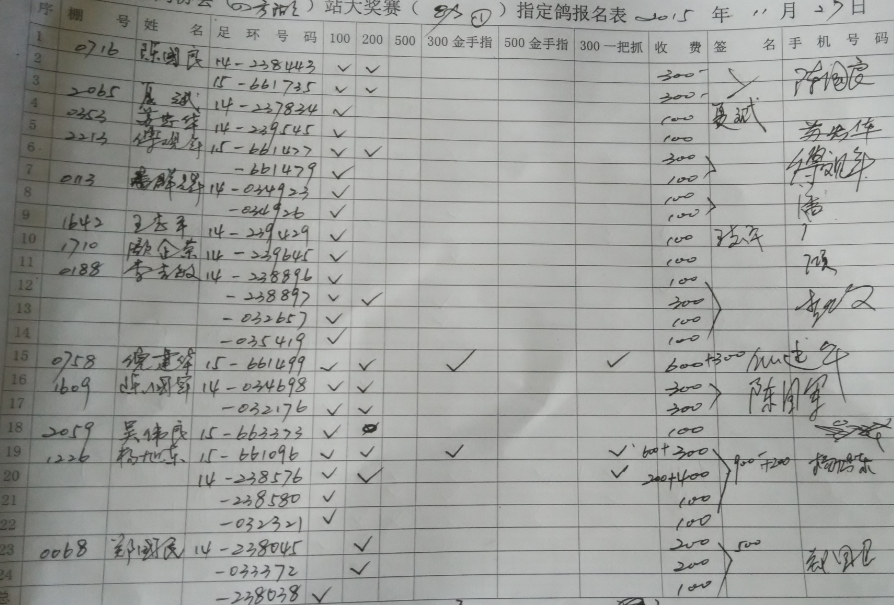 站大奖赛（ ① ）指定鸽报名表 2015 年 11 月 27 日
序 棚 号 姓 名 足 环 号 码 100 200 500 300金手指 500金手指 300一把抓 收 费 签 名 手 机 号 码
1 0716 陈国良 14-238443 ✓ ✓ 300-
2 15-661735 ✓ ✓ 300-
3 2065 夏斌 14-237834 ✓ 100 夏斌
4 0353 14-239545 ✓ 100
5 2213 15-661427 ✓ ✓ 300
6 -661479 ✓ 100
7 0113 14-034923 ✓ 100
8 -034926 ✓ 100
9 1642 14-239429 ✓ 100
10 1710 顾企荣 14-239645 ✓ 100 顾
11 0188 李 14-238896 ✓ 100
12 -238897 ✓ ✓ 300
13 -032657 ✓ 100
14 -035419 ✓ 100
15 0758 倪建华 15-661499 ✓ ✓ ✓ ✓ 600+300
16 1609 陈国军 14-034698 ✓ ✓ 300 陈国军
17 -032176 ✓ ✓ 300
18 2059 吴伟良 15-663373 ✓ 100
19 1226 杨旭东 15-661096 ✓ ✓ ✓ ✓ 600+300
20 14-238576 ✓ ✓ ✓ 200+400 900+200 杨旭东
21 -238580 ✓ 100
22 -032321 ✓ 100
23 0068 郑国民 14-238045 ✓ 200 500
24 -033372 ✓ 200 郑国民
-238038 ✓ 100